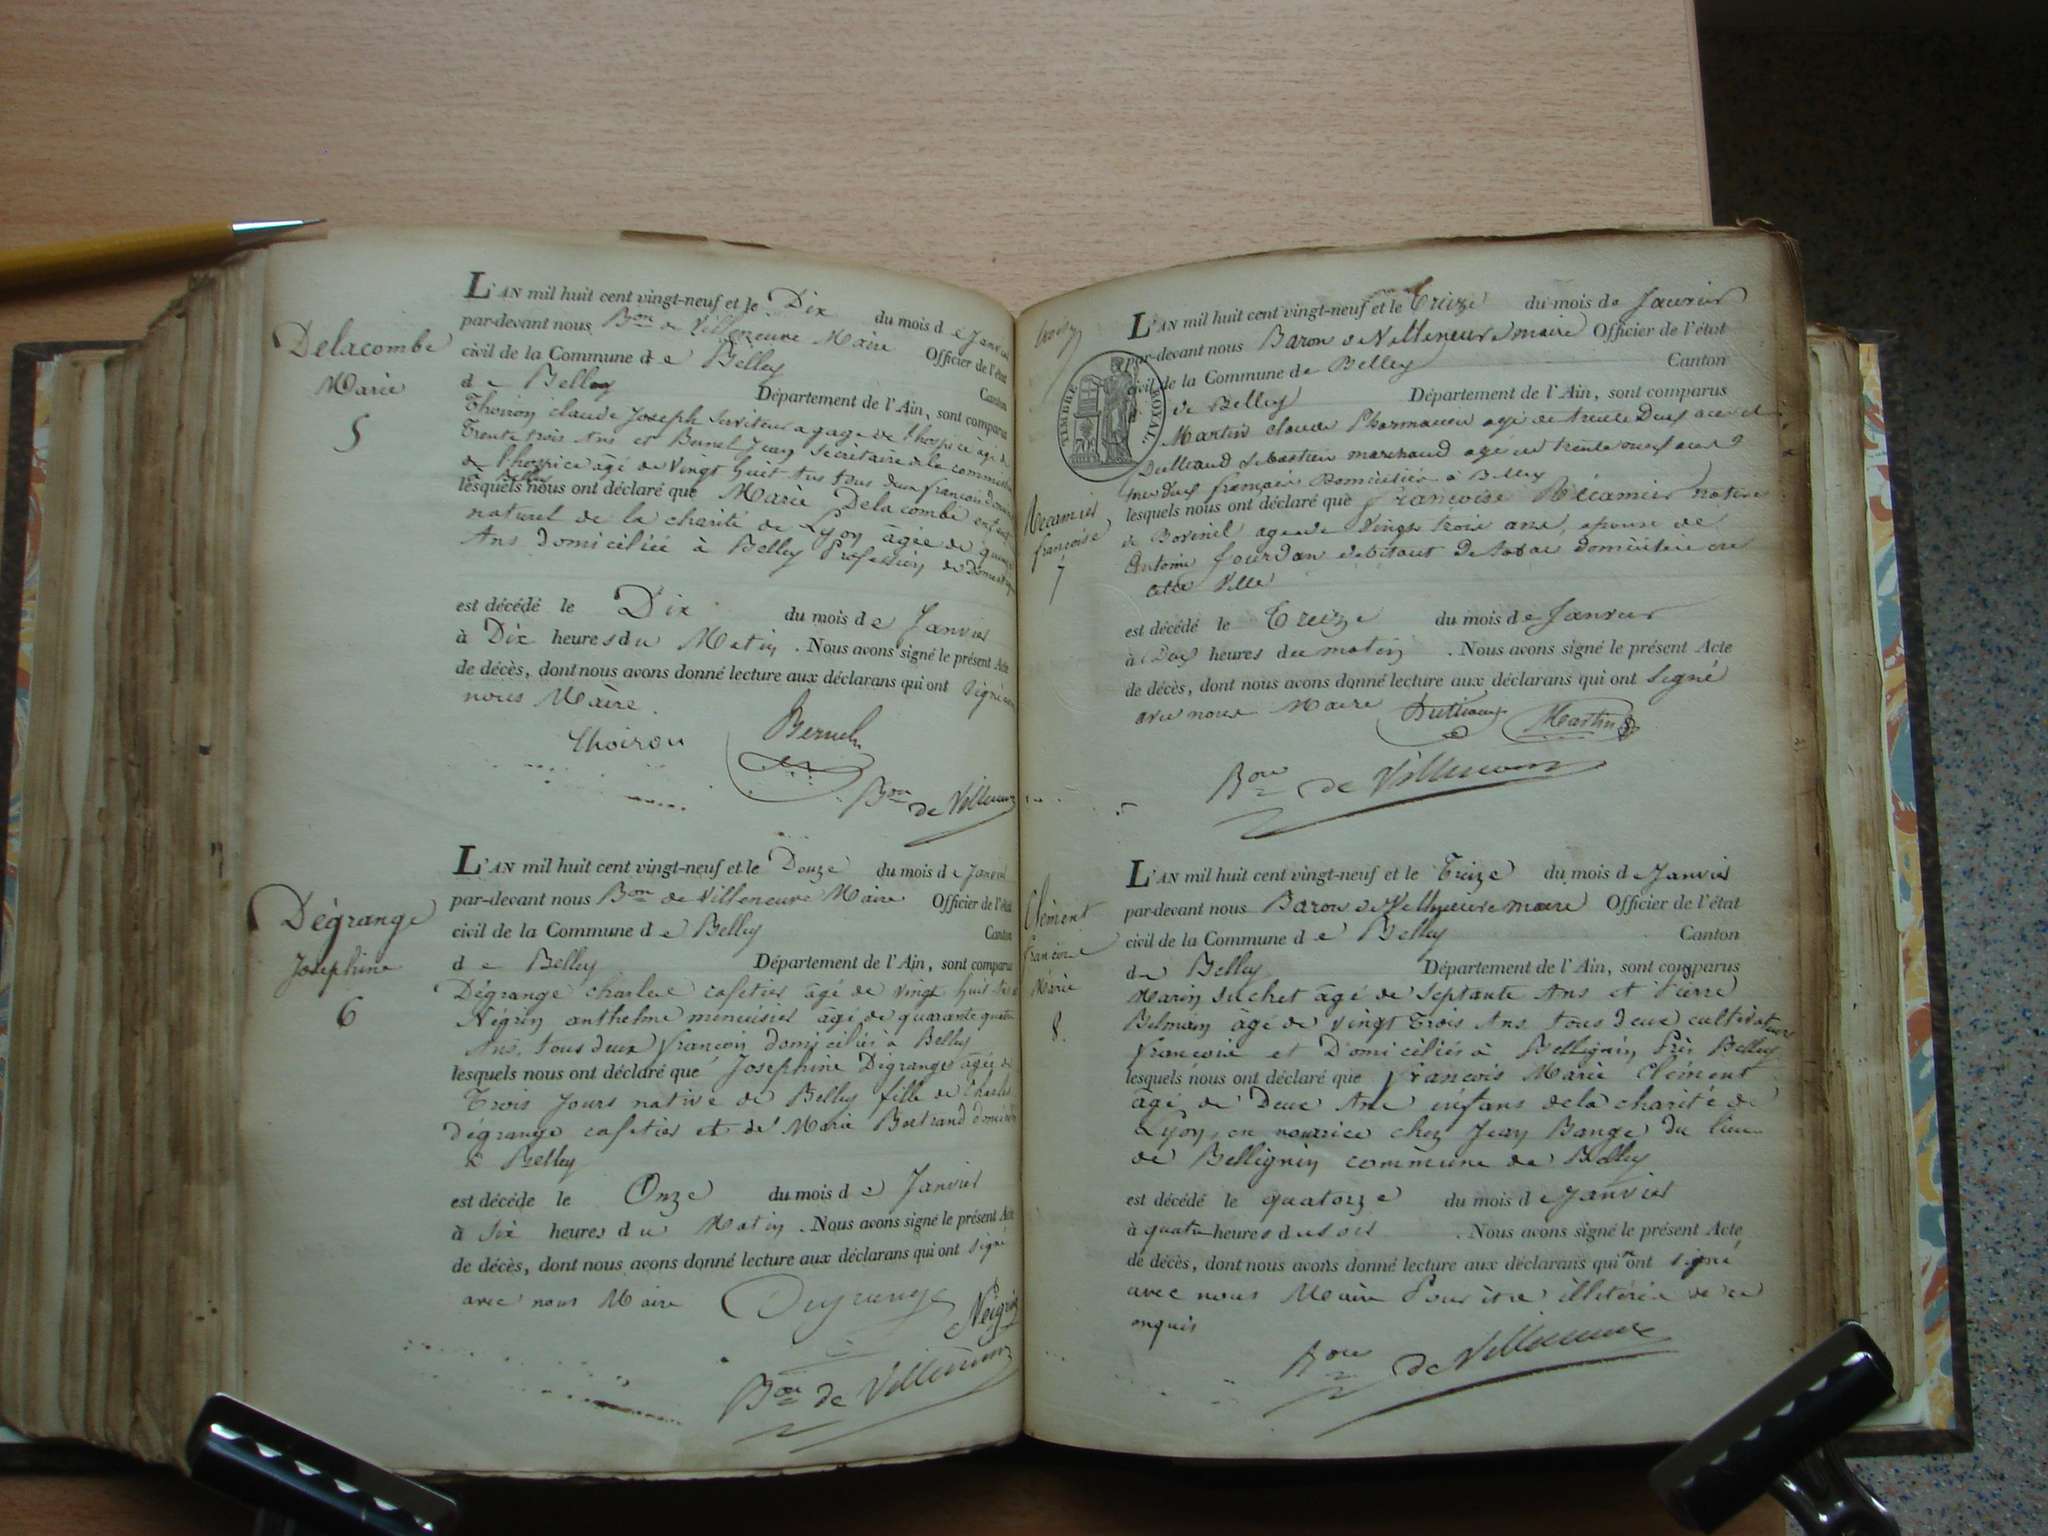 Delacombe
Marie
5
L'AN mil huit cent vingt-neuf et le Dix du mois de Janvier
par-devant nous Bon de Villeneuve Maire Officier de l'état
civil de la Commune de Belley Canton
de Belley Département de l'Ain, sont comparus
Thoiron Claude Joseph Serviteur a gage de l'hospice âgé de
Trente trois Ans et Bernel Jean Secrétaire de la commission
de l'hospice âgé de Vingt huit Ans tous deux françois
à Belley
lesquels nous ont déclaré que Marie Delacombe enfant
naturel de la charité de Lyon âgée de
Ans domiciliée à Belley Profession de Domestique
est décédé le Dix du mois de Janvier
à Dix heures du Matin . Nous avons signé le présent Acte
de décès, dont nous avons donné lecture aux déclarans qui ont signé
nous Maire.
thoiron Bernel
Bon de Villeneuve
Dégrange
Josephine
6
L'AN mil huit cent vingt-neuf et le Douze du mois de Janvier
par-devant nous Bon de Villeneuve Maire Officier de l'état
civil de la Commune de Belley Canton
de Belley Département de l'Ain, sont comparus
Dégrange charles cafetier âgé de vingt huit
Négrin anthelme menuisier âgé de quarante quatre
Ans, tous deux françois domiciliés à Belley
lesquels nous ont déclaré que Josephine Dégrange âgée de
Trois Jours native de Belley fille de Charles
dégrange cafetier et de Marie Bertrand
à Belley
est décédé le Onze du mois de Janvier
à Six heures du Matin . Nous avons signé le présent Acte
de décès, dont nous avons donné lecture aux déclarans qui ont signé
avec nous Maire Degrange Négrin
Bon de Villeneuve
TIMBRE ROYAL.
Recamier
françoise
7
L'AN mil huit cent vingt-neuf et le Treize du mois de Janvier
par-devant nous Baron de Villeneuve maire Officier de l'état
civil de la Commune de Belley Canton
de Belley Département de l'Ain, sont comparus
Martin Claude Pharmacien agé de trente Deux ans et
Sebastien marchand agé de trente neuf ans
tous deux français Domiciliés à Belley
lesquels nous ont déclaré que françoise Récamier native
de agée de Vingt trois ans, epouse de
Antoine Jourdan debitant De tabac domiciliée en
cette Ville
est décédé le Treize du mois de Janvier
à Deux heures du matin . Nous avons signé le présent Acte
de décès, dont nous avons donné lecture aux déclarans qui ont signé
avec nous Maire Martin
Bon de Villeneuve
Clément
françois
Marie
8.
L'AN mil huit cent vingt-neuf et le Treize du mois de Janvier
par-devant nous Baron de Villeneuve maire Officier de l'état
civil de la Commune de Belley Canton
de Belley Département de l'Ain, sont comparus
Marin Suchet âgé de Septante Ans et Pierre
âgé de vingt Trois Ans tous deux cultivateurs
françois et Domiciliés à Bellignin Près Belley
lesquels nous ont déclaré que françois Marie Clément
âgé de Deux Ans enfans de la charité de
Lyon, en nourrice chez Jean Bange du lieu
de Bellignin commune de Belley
est décédé le quatorze du mois de Janvier
à quatre heures du soir . Nous avons signé le présent Acte
de décès, dont nous avons donné lecture aux déclarans qui n'ont signé
avec nous Maire Pour être illitérés de ce
enquis
Bon de Villeneuve